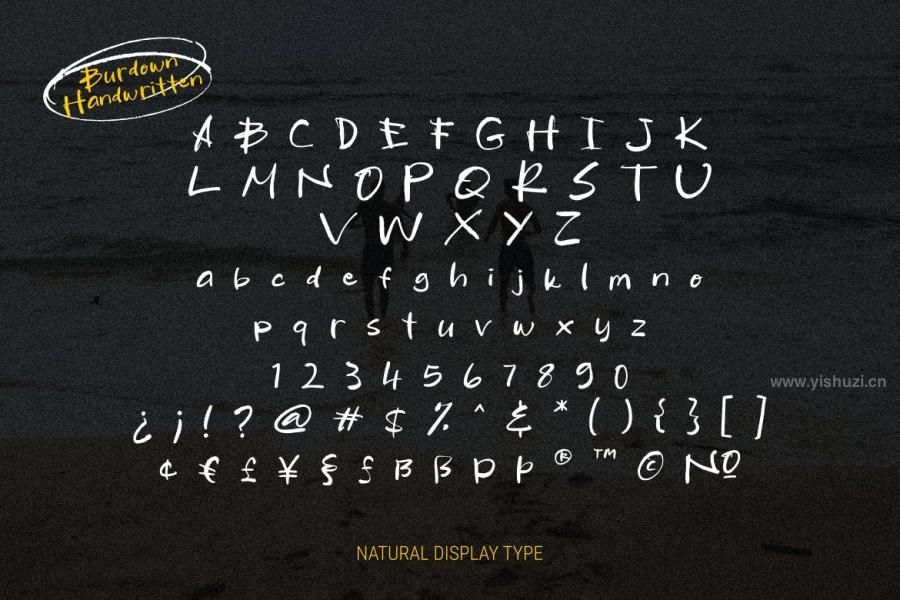 Burdown
Handwritten
A B C D E F G H I J K
L M N O P Q R S T U
V W X Y Z
a b c d e f g h i j k l m n o
p q r s t u v w x y z
1 2 3 4 5 6 7 8 9 0
www.yishuzi.cn
¿ ¡ ! ? @ # $ % ^ & * ( ) { } [ ]
¢ € £ ¥ § ƒ ß ß Þ þ ® ™ © №
NATURAL DISPLAY TYPE